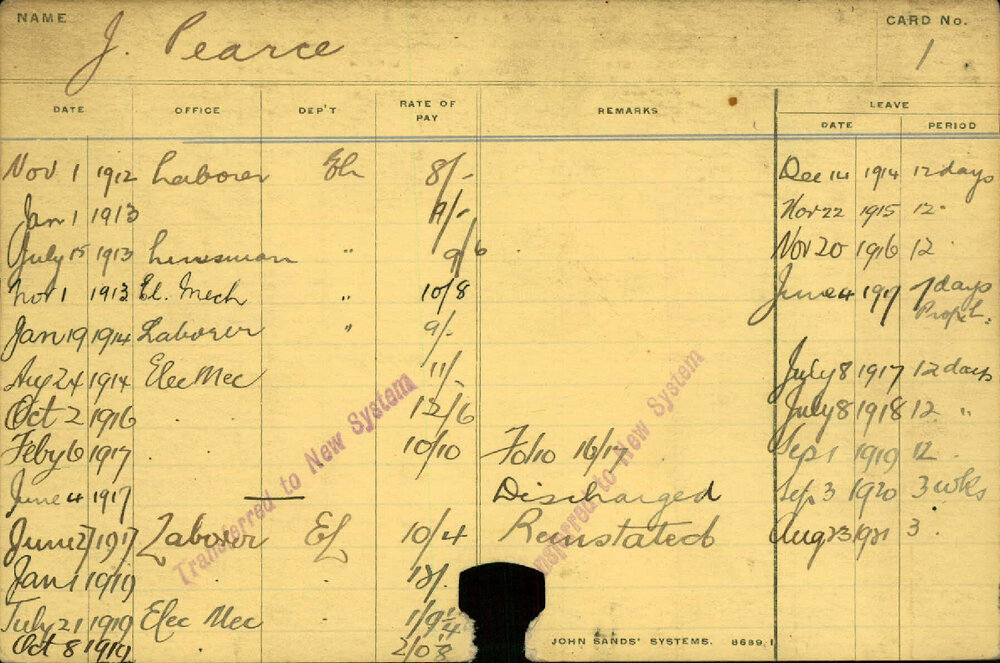 NAME
J. Pearce
CARD No.
1
DATE OFFICE DEP'T RATE OF PAY REMARKS LEAVE
DATE PERIOD
Nov 1 1912 Laborer El 8/- Dec 14 1914 12 days
Jan 1 1913 9/- Nov 22 1915 12 "
July 15 1913 Linesman " 9/6 Nov 20 1916 12 "
Nov 1 1913 El. Mech " 10/8 June 4 1917 7 days
Jan 19 1914 Laborer " 9/- Prop'l.
Aug 24 1914 Elec Mec 11/- July 8 1917 12 days
Oct 2 1916 12/6 July 8 1918 12 "
Feby 6 1917 10/10 Fo/10 16/17 Sep 1 1919 12 "
June 4 1917 — Discharged Sep 3 1920 3 wks
June 27 1917 Laborer El 10/4 Reinstated Aug 23 1921 3 "
Jan 1 1919 12/-
July 21 1919 Elec Mec 1/9 1/4
Oct 8 1919 2/0.8
Transferred to New System
Transferred to New System
JOHN SANDS' SYSTEMS. 8689.1